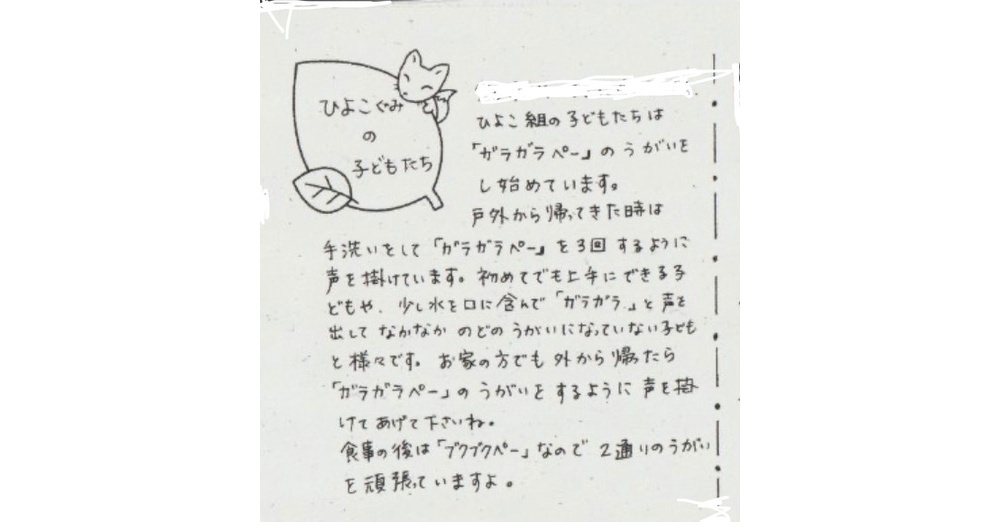 ひよこぐみ
の
子どもたち
ひよこ組の子どもたちは
「ガラガラペー」のうがいを
し始めています。
戸外から帰ってきた時は
手洗いをして「ガラガラペー」を3回するように
声を掛けています。初めてでも上手にできる子
どもや、少し水を口に含んで「ガラガラ」と声を
出してなかなかのどのうがいになっていない子ども
と様々です。お家の方でも外から帰ったら
「ガラガラペー」のうがいをするように声を掛
けてあげて下さいね。
食事の後は「ブクブクペー」なので2通りのうがい
を頑張っていますよ。